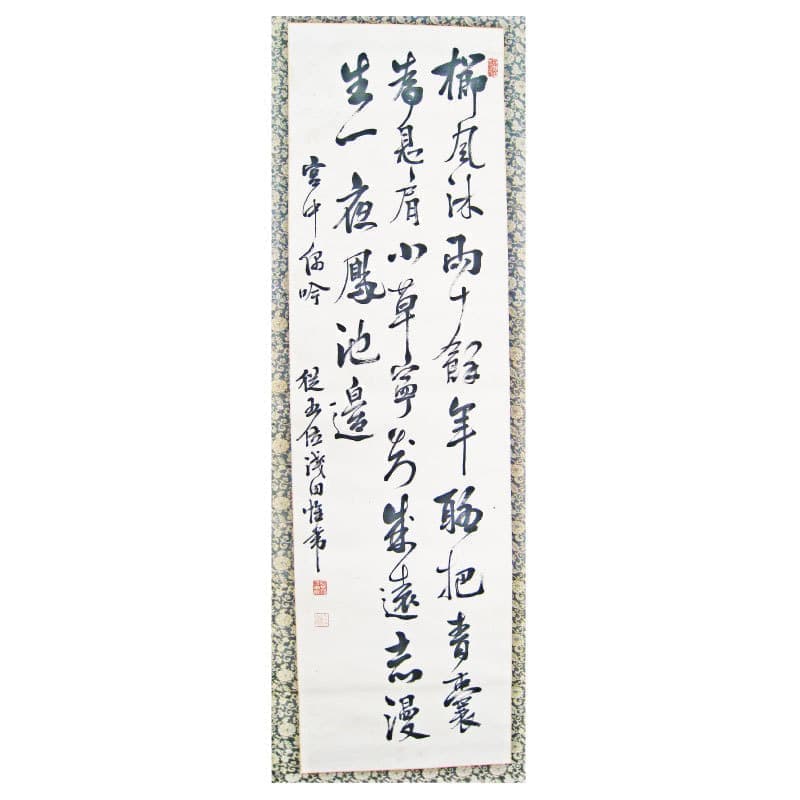 櫛風沐雨十餘年聊把青囊
暫息肩小草寧成遠志漫
生一夜鳳池邊
宮中偶吟 從五位淺田惟常